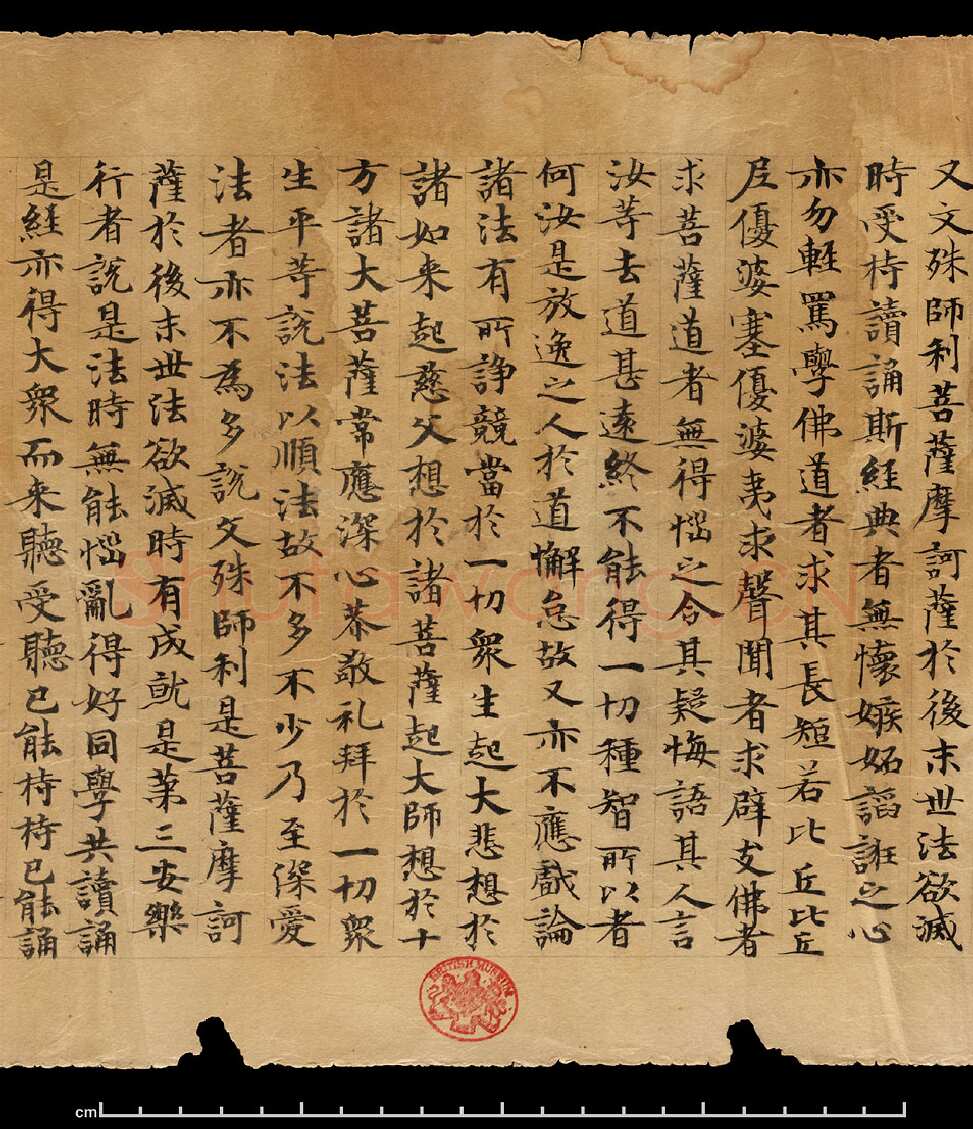 又文殊師利菩薩摩訶薩於後末世法欲滅
時受持讀誦斯經典者無懷嫉妬謟誑之心
亦勿輕罵學佛道者求其長短若比丘比丘
尼優婆塞優婆夷求聲聞者求辟支佛者
求菩薩道者無得惱之令其疑悔語其人言
汝等去道甚遠終不能得一切種智所以者
何汝是放逸之人於道懈怠故又亦不應戲論
諸法有所諍競當於一切衆生起大悲想於
諸如来起慈父想於諸菩薩起大師想於十
方諸大菩薩常應深心恭敬礼拜於一切衆
生平等說法以順法故不多不少乃至深愛
法者亦不為多說文殊師利是菩薩摩訶
薩於後末世法欲滅時有成就是第三安樂
行者說是法時無能惱亂得好同學共讀誦
是經亦得大衆而来聽受聽已能持持已能誦
BRITISH MUSEUM
Shufawang.CN
cm